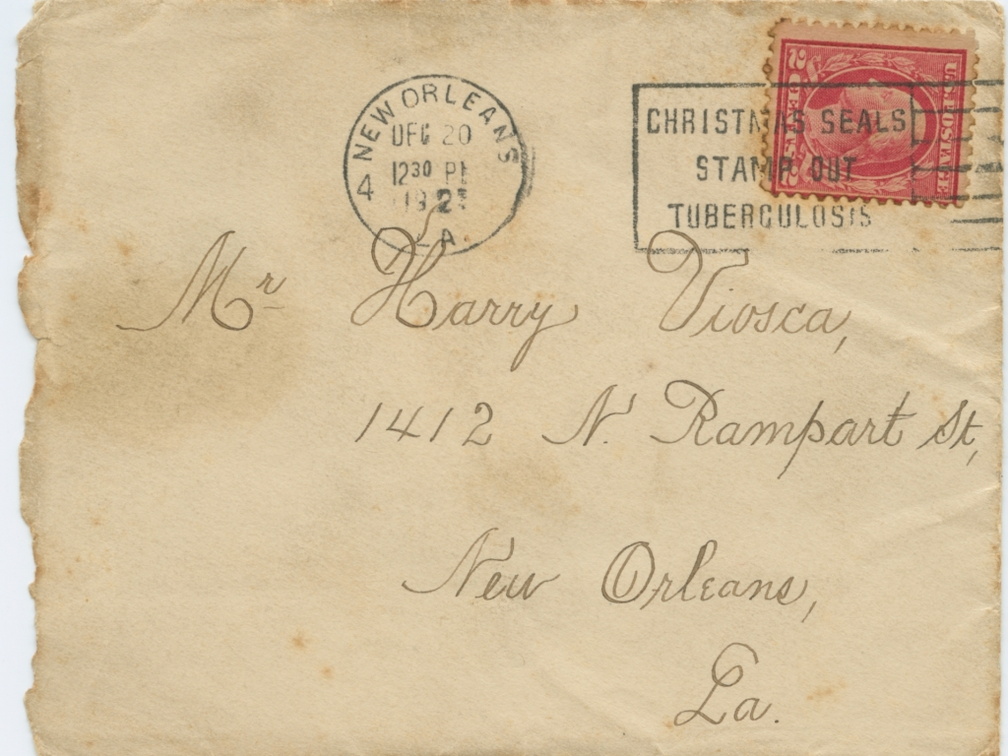 NEW ORLEANS
DEC 20
12 30 P
192
4
LA.
CHRISTMAS SEALS
STAMP OUT
TUBERCULOSIS
U.S. POSTAGE
2 CENTS 2
Mr Harry Viosca,
1412 N. Rampart St,
New Orleans,
La.